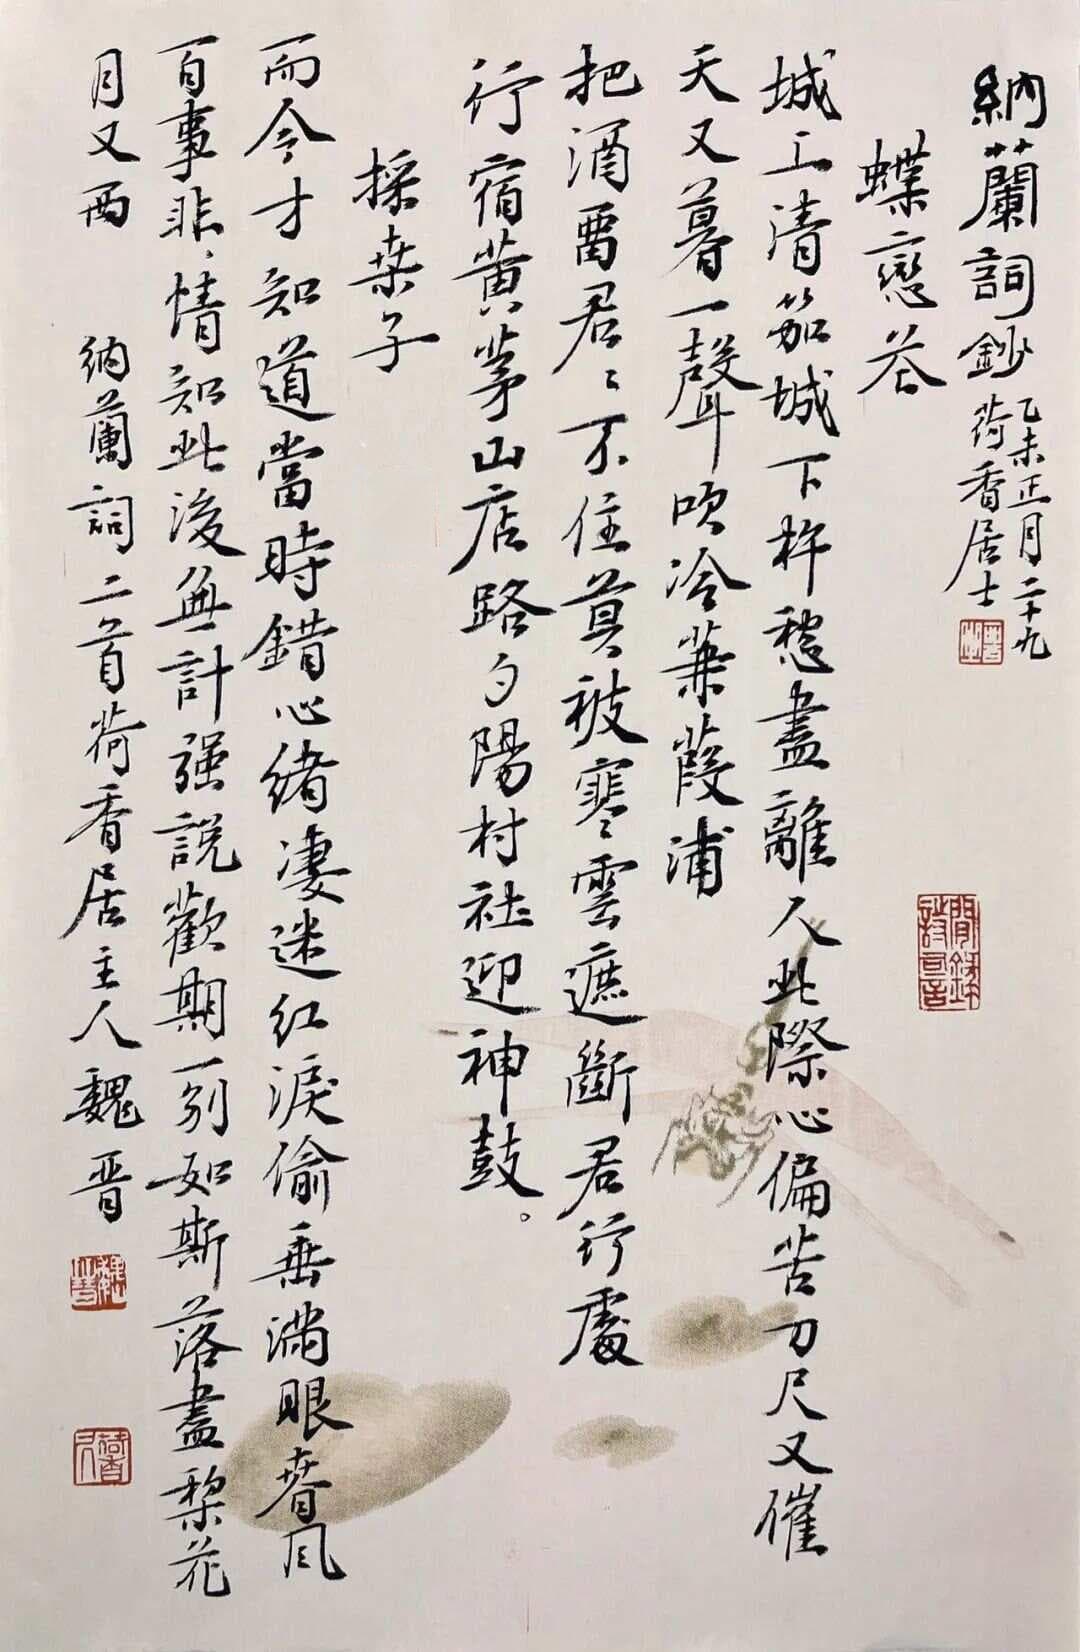 納蘭詞鈔
乙未正月二十九
荷香居士
蝶戀花
城上清笳城下杵愁盡離人此際心偏苦刀尺又催
天又暮一聲吹冷蒹葭浦
把酒畱君々不住莫被寒雲遮斷君行處
行宿黃茅山店路夕陽村社迎神鼓。
採桒子
而今才知道當時錯心緒凄迷紅淚偷垂滿眼春風
百事非、情知此後無計强說歡期一別如斯落盡梨花
月又西 納蘭詞二首荷香居主人魏晋